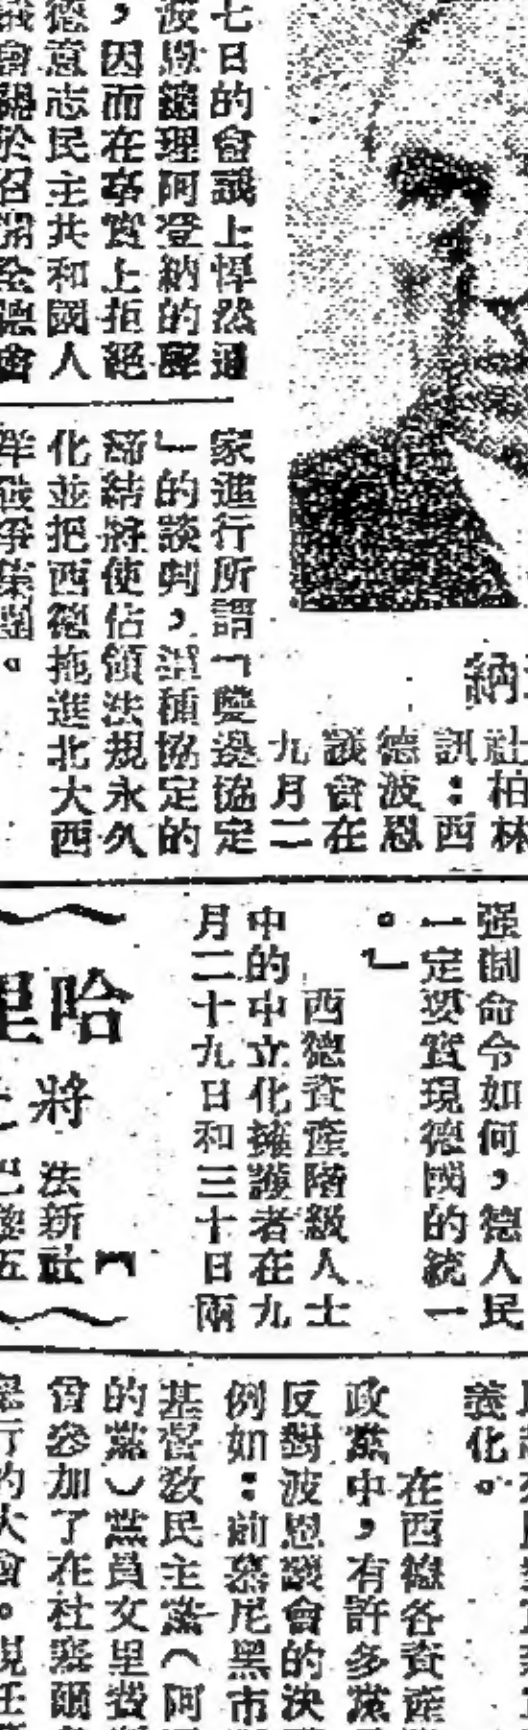 七日的會議上悍然通
波恩總理阿登納的
，因而在事實上拒絕
德意志民主共和國人
議會關於召開全德會
納
社柏林
訊：西
德波恩
議會在
九月二
家進行所謂「雙邊協定
」的談判，這種協定的
締結將使佔領法規永久
化並把西德拖進北大西
洋戰爭集團。
强制命令如何，德人民
一定要實現德國的統一
。」
西德資產階級人士
中的中立化擁護者在九
月二十九日和三十日兩
哈
將
法新社
義化。
在西德各資產
政黨中，有許多黨
反對波恩議會的決
例如：前慕尼黑市
基督教民主黨（阿
的黨）黨員女里
曾參加了在杜塞爾
行的大會。現任